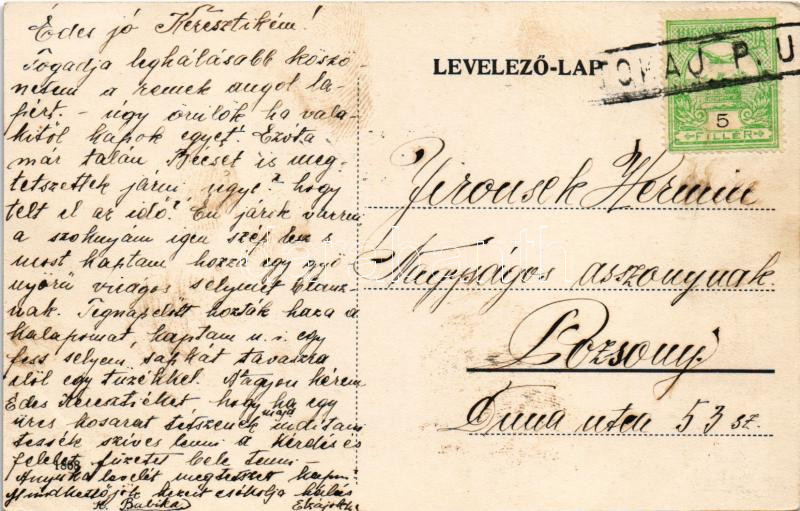 Édes jó Keresztikém!
Fogadja leghálásabb köszö-
netem a remek angol la-
pért. – úgy örülök ha vala-
kitől kapok egyet! Ezóta
már talán Bécset is meg-
tetszettek járni ugye? hogy
telt el az idő? Én járok varrni
a szoknyám igen szép lesz s
most kaptam hozzá egy gyö
nyörű virágos selymet blauz-
nak. Tegnapelőtt hozták haza a
kalapomat, kaptam u. i. egy
less selyem sapkát tavaszra
elöl egy tűzékkel. Nagyon kérem
Édes Keresztiéket hogy ha egy
majd
üres kosarat tetszenek indítani
tessék szíves lenni a kérdés és
felelet füzetet bele tenni –
Anyuka levelét megtetszett kapni
Mindkettőjök kezeit csókolja hálás
K. Babika
1868
LEVELEZŐ-LAP
TOKAJ P. U
5
FILLÉR
Jirousek Hermin
Nagyságos asszonynak.
Pozsony.
Duna utca 53 sz.